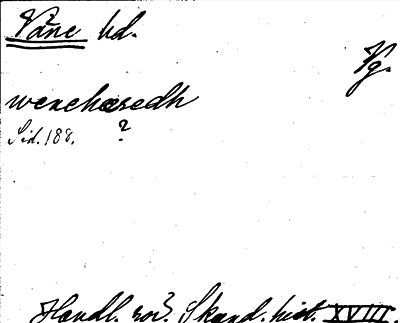 Våne hd.
Vg.
wexehæredh
Sid. 188. ?
Handl. rör. Skand. hist. XVIII.